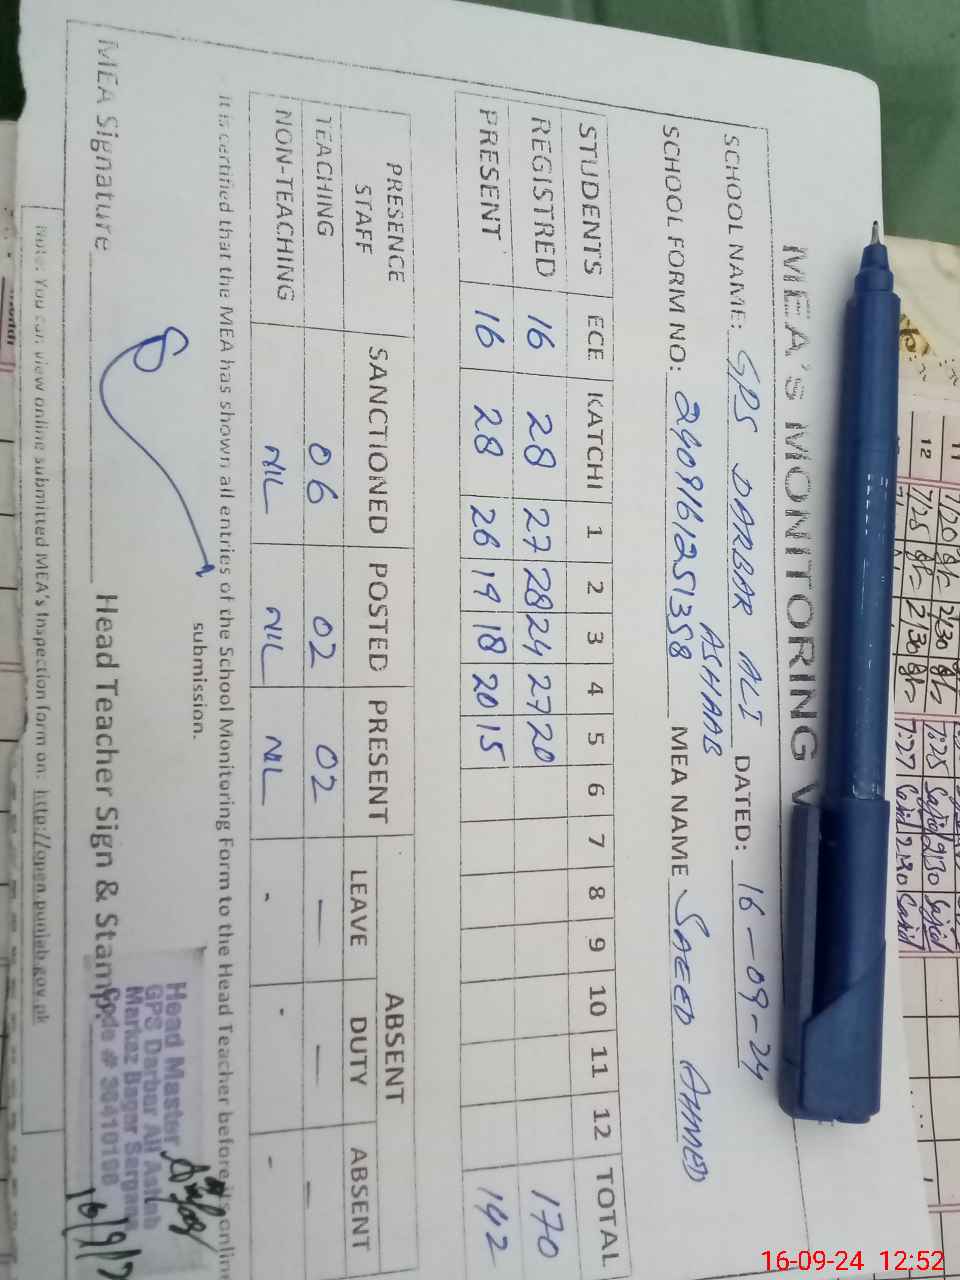 MEA'S MONITORING
SCHOOL NAME: GPS DARBAR ALI DATED: 16-09-24
ASHAAB
SCHOOL FORM NO: MEA NAME SAEED AHMED
STUDENTS ECE KATCHI 1 2 3 4 5 6 7 8 9 10 11 12 TOTAL
REGISTRED 16 28 27 28 24 27 20 170
PRESENT 16 28 26 19 18 20 15 142
PRESENCE STAFF SANCTIONED POSTED PRESENT ABSENT
LEAVE DUTY ABSENT
TEACHING 06 02 02 — — —
NON-TEACHING NIL NIL NIL - - -
It is certified that the MEA has shown all entries of the School Monitoring Form to the Head Teacher before online
submission.
MEA Signature Head Teacher Sign & Stamp:
Head Master
GPS Darbar Ali Ashab
Code #
16/9/
Note: You can view online submitted MEA's Inspection form on: http://open.punjab.gov.pk
12
16-09-24 12:52